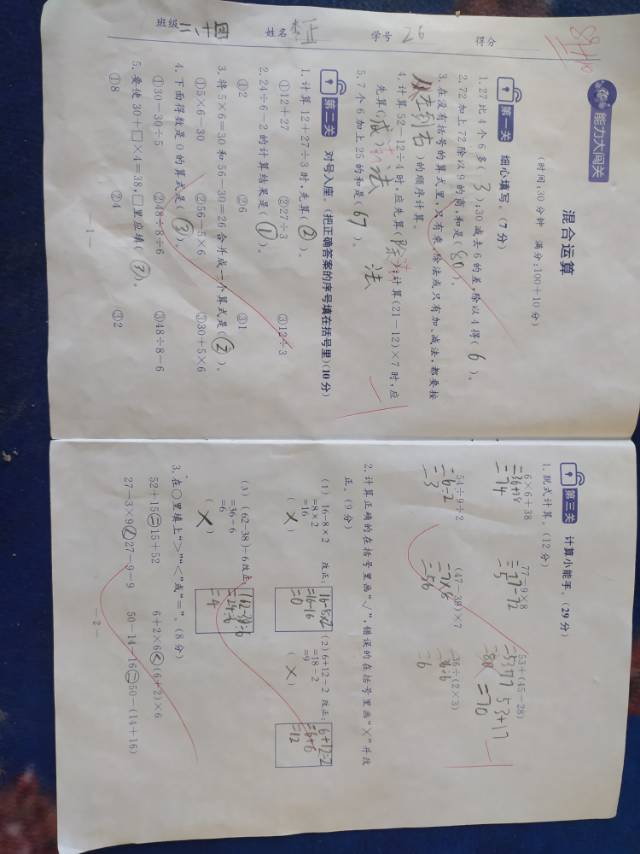 能力大闯关
混合运算
(时间:30分钟 满分:100+10分)
第一关 细心填写。(7分)
1. 27比4个6多( 3 );30减去6的差,除以4得( 6 )。
2. 72加上72除以9的商,和是( 80 )。
3. 在没有括号的算式里,只有乘、除法或只有加、减法,都要按
(从左到右)的顺序计算。
4. 计算52-12÷4时,应先算(除法);计算(21-12)×7时,应
先算(减法)法
5. 7个6加上25的和是( 67 )。
第二关 对号入座。(把正确答案的序号填在括号里)(10分)
1. 计算12+27÷3时,先算( ② )。
①12+27 ②27÷3 ③12÷3
2. 24÷6-2的计算结果是( ① )。
①2 ②6 ③1
3. 将5×6=30和56-30=26合并成一个算式是( ② )。
①5×6-30 ②56-5×6 ③30+5×6
4. 下面得数是0的算式是( ③ )。
①30-30÷5 ②48+8÷6 ③48÷8-6
5. 要使30+□×4=38,□里应填( ③ )。
①8 ②4 ③2
-1-
第三关 计算小能手。(29分)
1. 脱式计算。(12分)
6×6+38 77-9×8 53+(45-28)
=36+38 =77-72 53+17
=74 =5 =70
54÷9÷2 (47-39)×7 36÷(2×3)
=6÷2 =7×8 =36÷6
=3 =56 =6
2. 计算正确的在括号里画“√”,错误的在括号里画“×”并改
正。(9分)
(1) 16-8×2 改正: 16-8×2 (2) 6+12-2 改正: 6+12÷2
=8×2 =16-16 =18-2 =6+6
=16 =0 =9 =12
( × ) ( × )
(3) (62-38)-6 改正:
=36-6 =24÷6
=6 =4
( × )
3. 在○里填上“>”“<”或“=”。(8分)
52+15=15+52 6+2×6<(6+2)×6
27-3×9<27-9-9 50-14-16=50-(14+16)
-2-